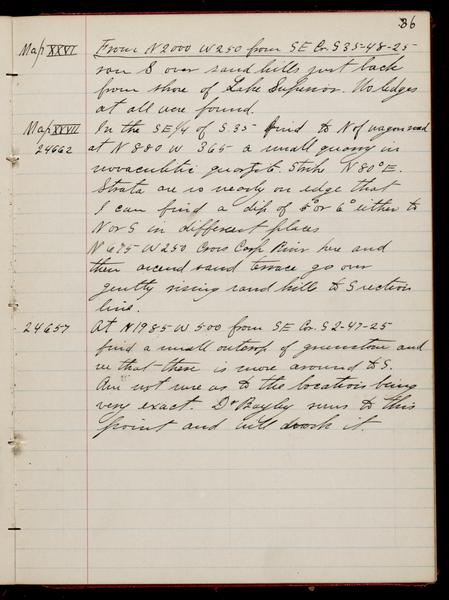 36
Map XXVI From N 2000 W 250 from SE Cor S 35-48-25
ran S over sand hills just back
from shore of Lake Superior. No ledges
at all were found.
Map XXVII In the SE 1/4 of S. 35 find to N of wagon road
24662 at N 880 W 365 a small quarry in
novaculitic quartzite. Strike N 80° E.
Strata are so nearly on edge that
I can find a dip of 5° or 6° either to
N or S in different places
N 675 W 250 Cross Carp River here and
then ascend sand terrace go over
gently rising sand hills to S section
line.
24657 At N 1985 W 500 from SE Cor. S 2-47-25
find a small outcrop of greenstone and
see that there is more around to S.
Am not sure as to the location being
very exact. Dr Bayley runs to this
point and will check it.